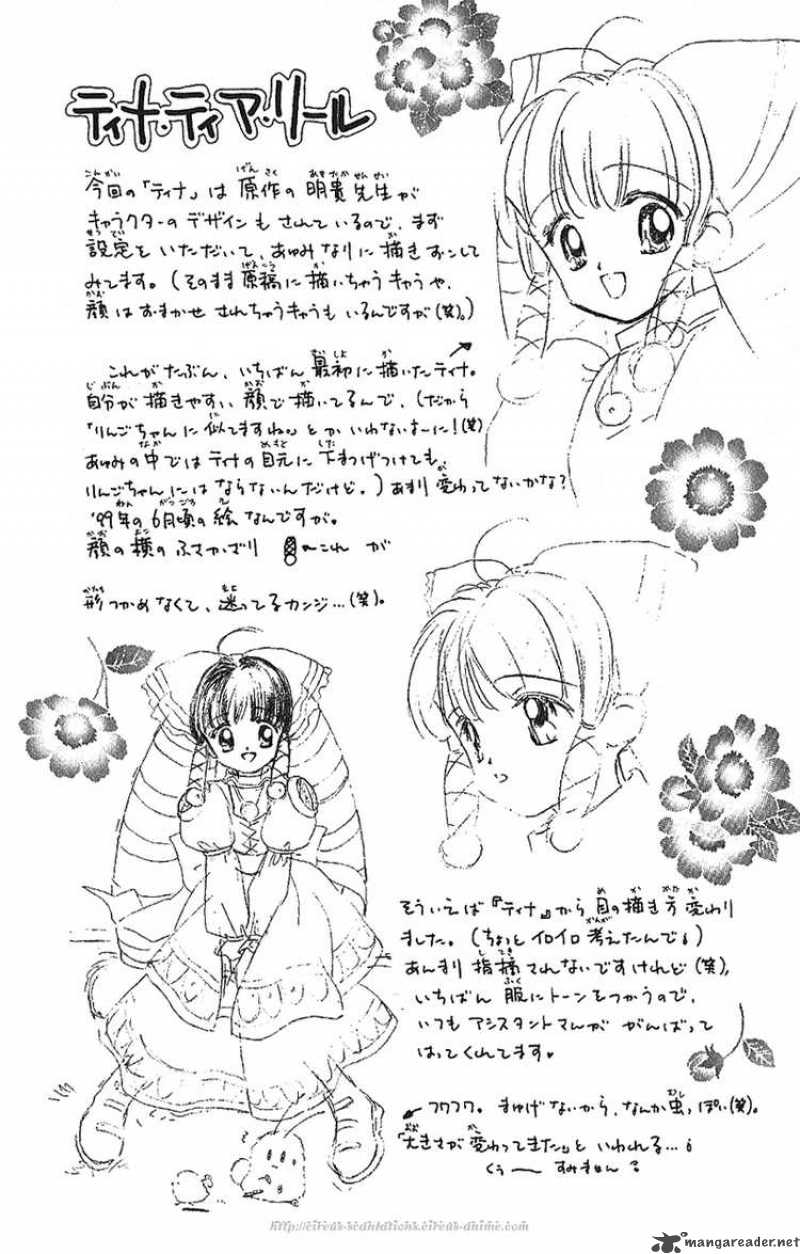 ティナ・ティア・リール
今回の「ティナ」は原作の明貴先生が
キャラクターのデザインもされているので、まず
設定をいただいて、あゆみなりに描きおこして
みてます。(そのまま原稿に描いちゃうキャラや、
顔はおまかせされちゃうキャラもいるんですが(笑)。)
これがたぶん、いちばん最初に描いたティナ。
自分が描きやすい顔で描いてるんで、(だから
「りんごちゃんに似てますね。」とかいわないよーに!(笑)
あゆみの中ではティナの目元に下まつげつけても、
りんごちゃんにはならないんだけど。)あまり変わってないかな?
'99年の6月頃の絵なんですが。
顔の横のふさかざり ←これ が
形つかめなくて、迷ってるカンジ…(笑)。
そういえば『ティナ』から目の描き方変わり
ました。(ちょっとイロイロ考えたんで)
あんまり指摘されないですけれど(笑)。
いちばん服にトーンをつかうので、
いつもアシスタントさんががんばって
はってくれてます。
フワフワ。まゆげないから、なんか虫っぽい(笑)。
「大きさが変わってきた」といわれる…
くぅー すみません
mangareader.net